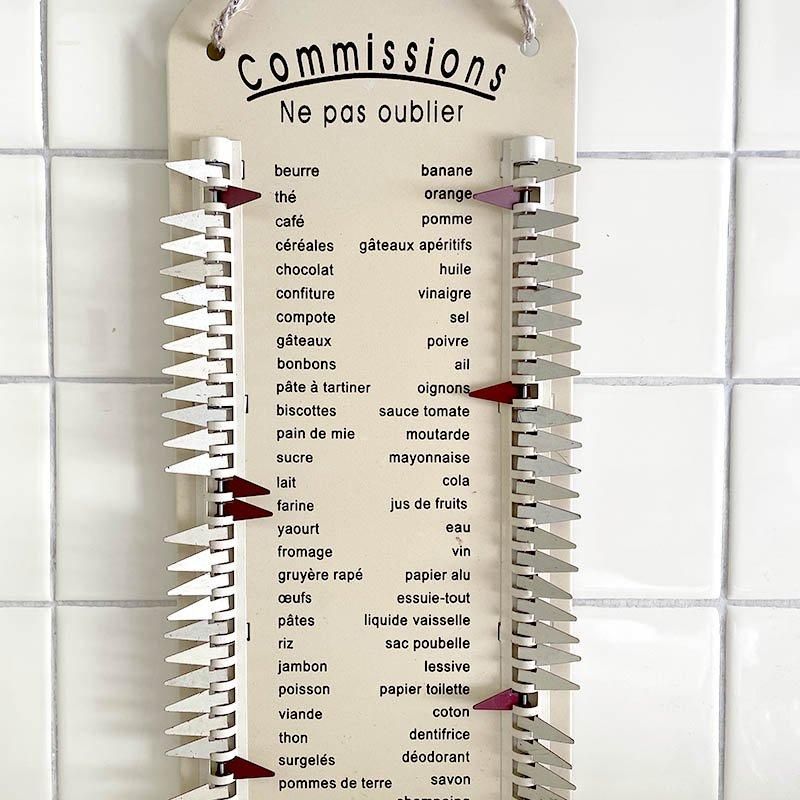 Commissions
Ne pas oublier
beurre banane
thé orange
café pomme
céréales gâteaux apéritifs
chocolat huile
confiture vinaigre
compote sel
gâteaux poivre
bonbons ail
pâte à tartiner oignons
biscottes sauce tomate
pain de mie moutarde
sucre mayonnaise
lait cola
farine jus de fruits
yaourt eau
fromage vin
gruyère rapé papier alu
œufs essuie-tout
pâtes liquide vaisselle
riz sac poubelle
jambon lessive
poisson papier toilette
viande coton
thon dentifrice
surgelés déodorant
pommes de terre savon